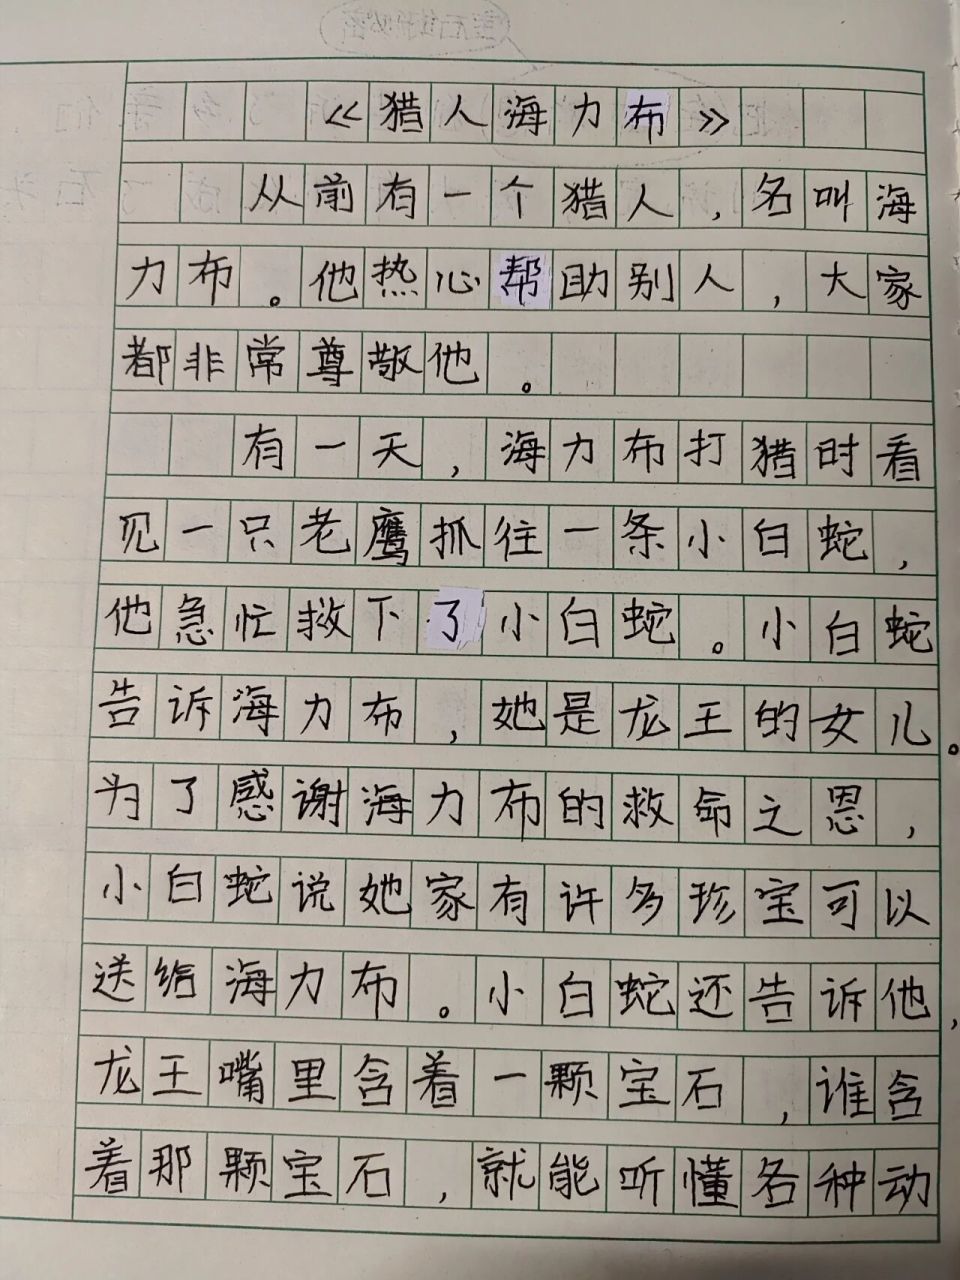 《猎人海力布》
从前有一个猎人，名叫海
力布。他热心帮助别人，大家
都非常尊敬他。
有一天，海力布打猎时看
见一只老鹰抓往一条小白蛇，
他急忙救下了小白蛇。小白蛇
告诉海力布，她是龙王的女儿。
为了感谢海力布的救命之恩，
小白蛇说她家有许多珍宝可以
送给海力布。小白蛇还告诉他，
龙王嘴里含着一颗宝石，谁含
着那颗宝石，就能听懂各种动